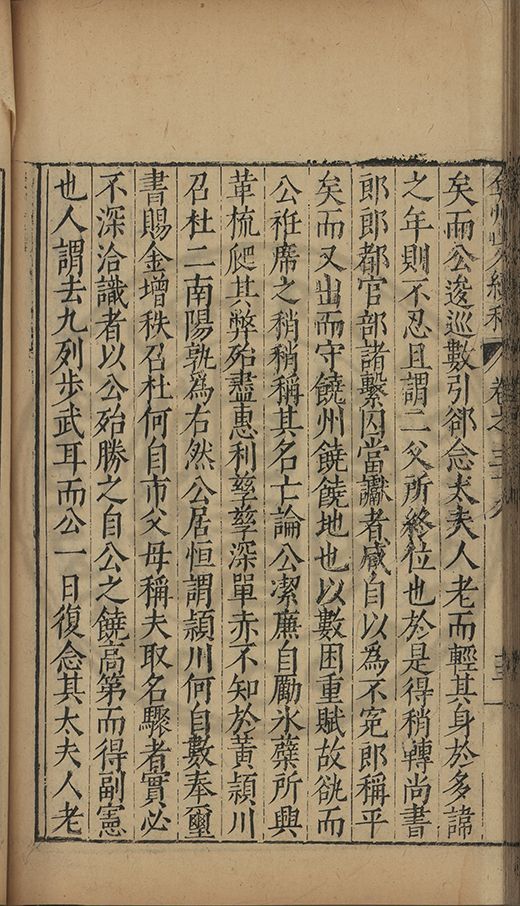 弇州山人續稿 卷之三十九 十三
矣而公逡巡數引郤念太夫人老而輕其身於多諱
之年則不忍且謂二父所終位也於是得稍轉尚書
郎郎都官部諸繫囚當讞者咸自以為不冤郎稱平
矣而又出而守饒州饒饒地也以數困重賦故而
公袵席之稍稍稱其名亡論公潔廉自勵氷蘖所興
革梳爬其弊殆盡惠利孳孳深單赤不知於黃潁川
召杜二南陽孰爲右然公居恒謂潁川何自數奉璽
書賜金增秩召杜何自市父母稱夫取名驟者實必
不深洽識者以公殆勝之自公之饒高第而得副憲
也人謂去九列步武耳而公一日復念其太夫人老